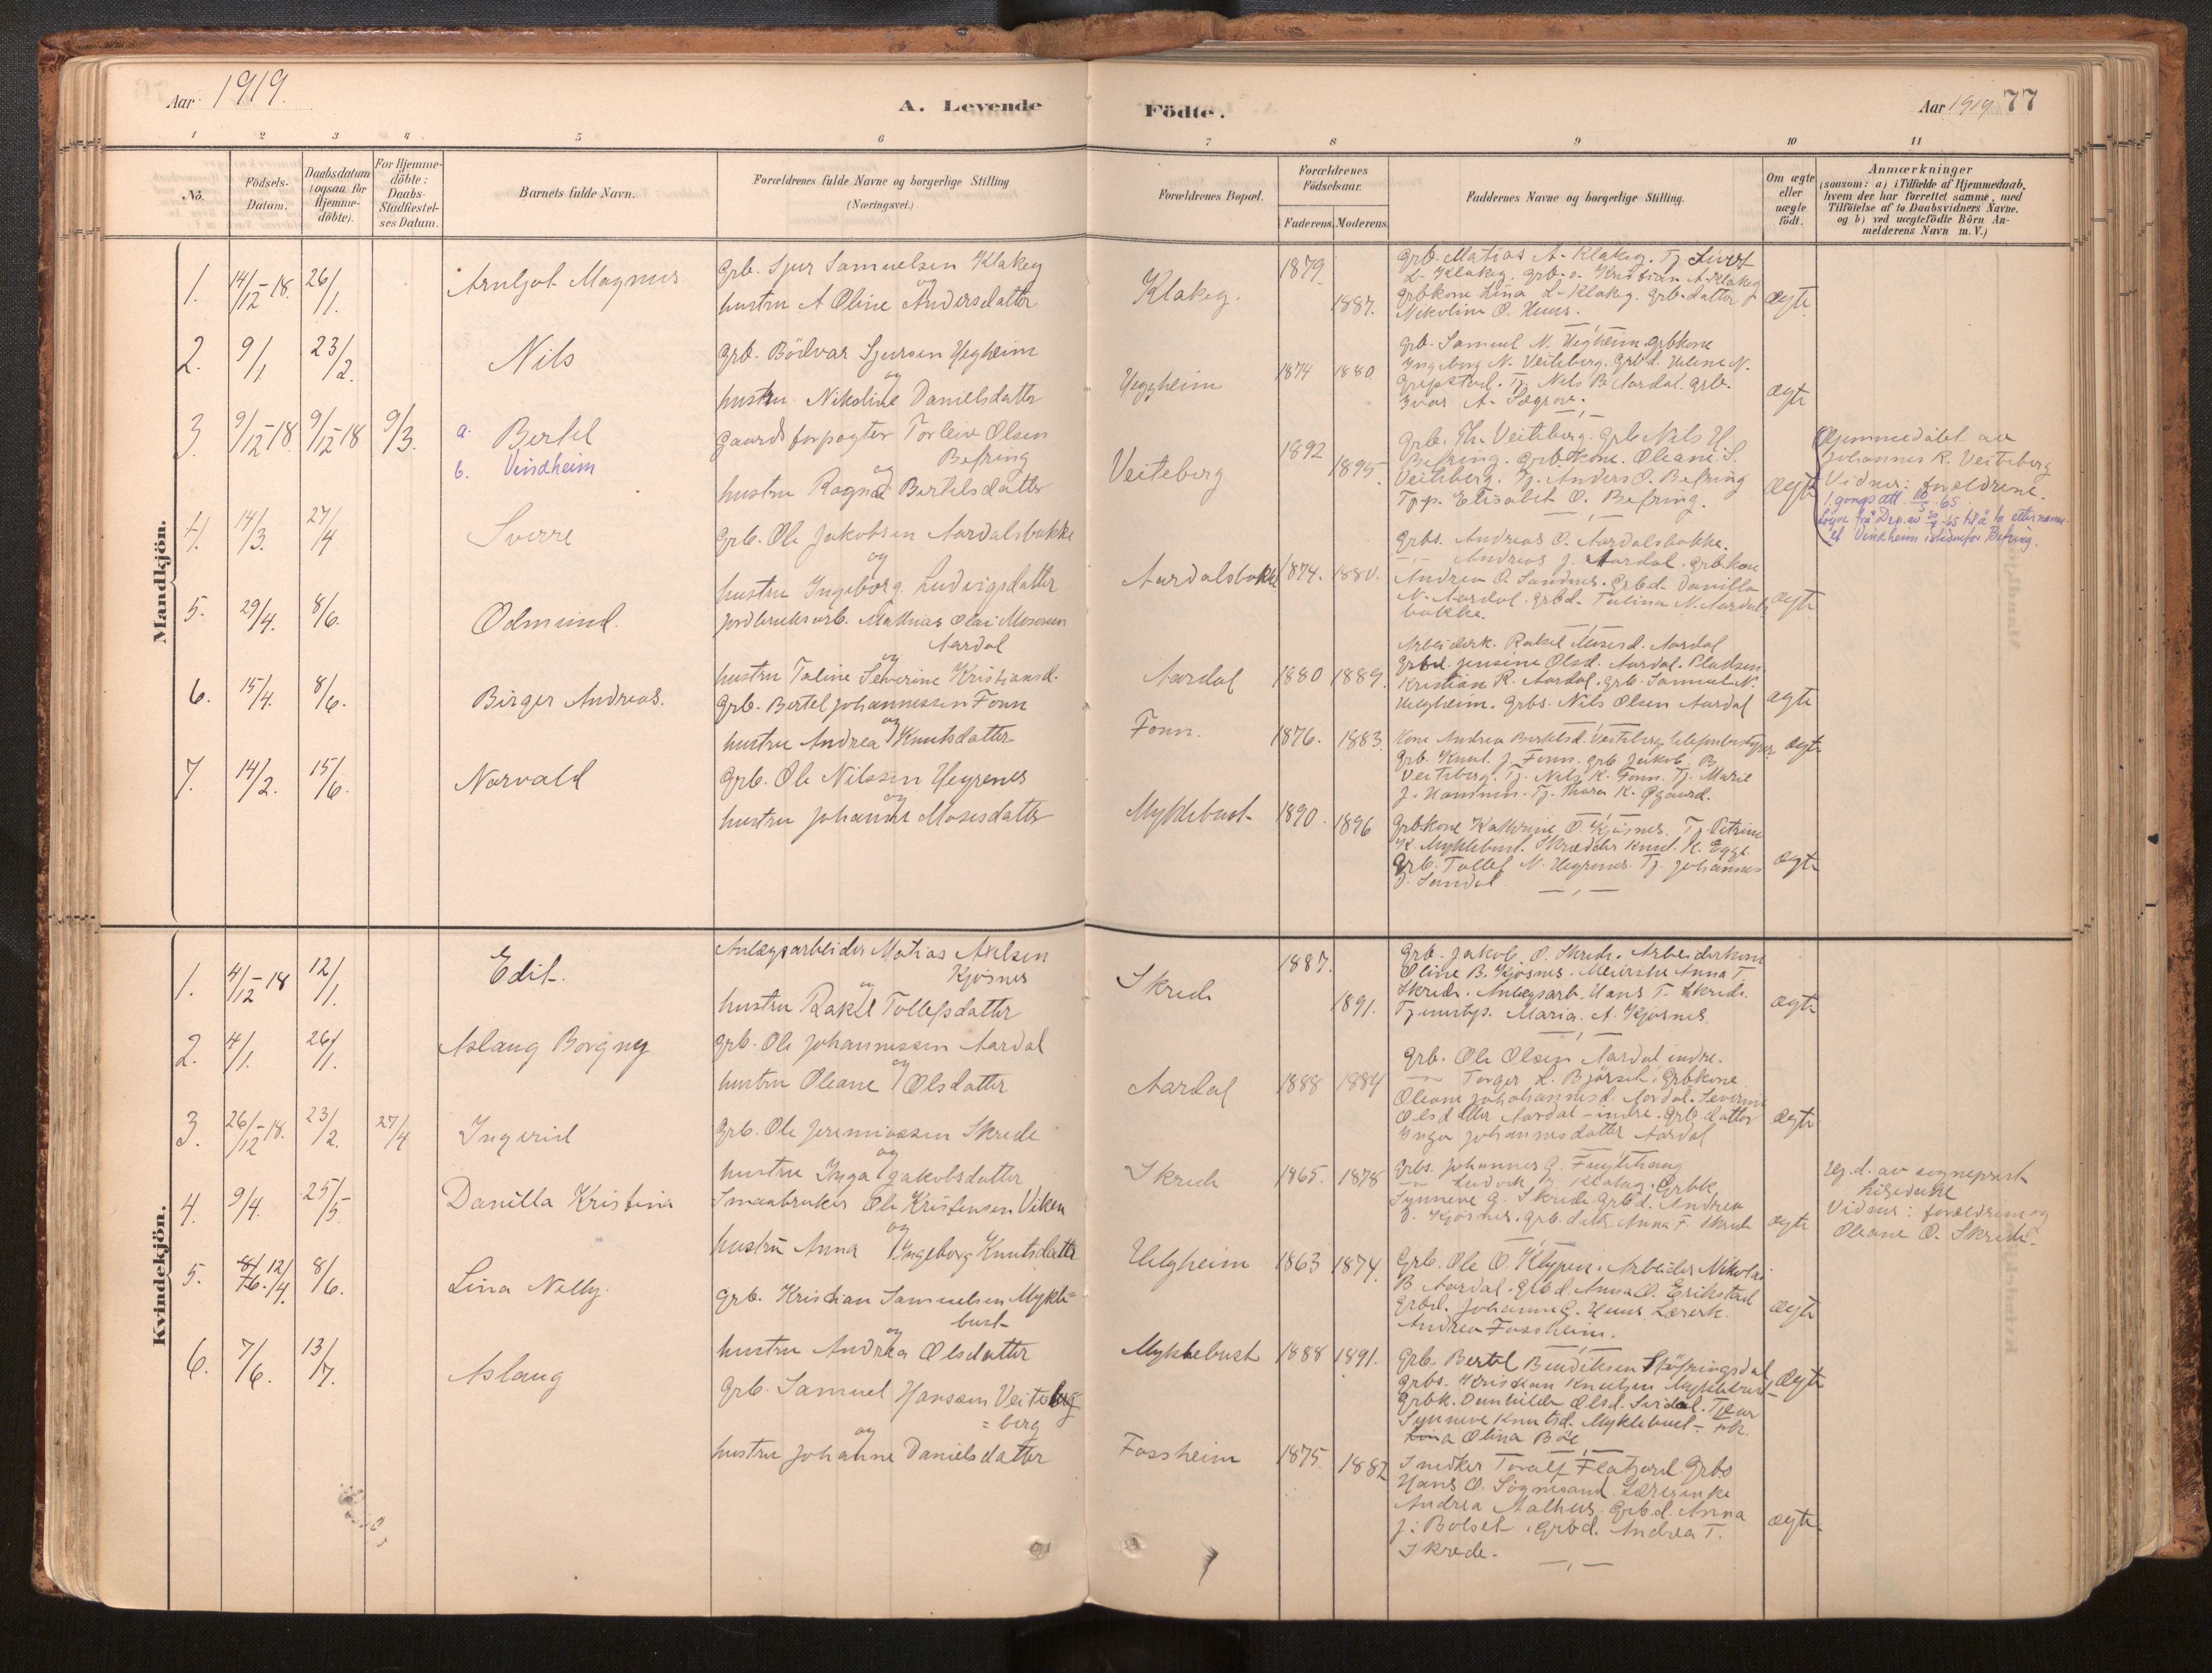 Aar 1919.
A. Levende
Födte.
Aar 1919 77
1 2 3 4 5 6 7 8 9 10 11
No.
Födsels-
Datum.
Daabsdatum
(ogsaa for
Hjemme-
döbte).
For Hjemme-
döbte:
Daabs-
Stadfæstel-
ses Datum.
Barnets fulde Navn.
Forældrenes fulde Navne og borgerlige Stilling
(Næringsvei.)
Forældrenes Bopæl.
Forældrenes
Födselsaar.
Faderens. Moderens.
Faddernes Navne og borgerlige Stilling.
Om ægte
eller
uægte
födt.
Anmærkninger
(saasom: a) i Tilfælde af Hjemmedaab,
hvem der har forrettet samme, med
Tilföielse af to Daabsvidners Navne.
og b) ved uægtefödte Börn An-
melderens Navn m. V.)
Mandkjön.
1. 14/12-18. 26/1. Arnljot Magnus
Grb. Sjur Samuelsen Klakeg
og
hustru A Oline Andersdatter
Klakeg. 1879 1887.
Grb. Matias A. Klakeg. Tj. Sivert
L. Klakeg. Grb.s. Kristian A. Klakeg
Grbkone Lina L. Klakeg. Grb.datter
Nikolina O. Huus.
ægte
2. 9/1 23/2. Nils
Grb. Bödvar Sjursen Hegheim
og
hustru Nikoline Danielsdatter
Heggheim 1874 1880
Grb. Samuel N. Hegheim. Grbkone
Ingeborg N. Veiteberg. Grbd. Helene N.
Tj. Nils B. Aardal. Grb.
Ivar A. Søgrov.
ægte
3 9/12-18 9/12-18 9/3. a. Bertel
b. Vindheim
Gaardsforpagter Torleiv Olsen
Befring
og
hustru Ragna Bertelsdatter
Veiteberg 1892 1895
Grb. Veiteberg. Grb Nils H.
Befring. Grbkone. Oleane S.
Veiteberg. Tj. Anders O. Befring
Tjp. Elisabet O. Befring.
ægte
Hjemmedöbt av
Johannes R. Veiteberg
Vidner: forældrene.
65
frå Dep. av 65 til å ta etternamn-
et Vindheim istadenfor Befring.
4. 14/3. 27/4 Sverre
Grb. Ole Jakobsen Aardalsbakke
og
hustru Ingeborg Ludvigsdatter
Aardalsbakke 1874. 1880.
Grbs. Andreas O. Aardalsbakke.
Andreas J. Aardal. Grbkone
Andrea O. Sandnes. Grbd. Danilla
N. Aardal. Grbd. Talina N. Aardals
bakke.
ægte
5. 29/4. 8/6. Odmund.
Jordbruksarb. Mathias Olai Mosesen
Aardal
og
hustru Taline Severine Kristiansd.
Aardal 1880 1889.
Arbeiderk. Rakel Mosesd. Aardal
Grbd. Jensine Olsd. Aardal. Pladsm.
Kristian R. Aardal. Grb. Samuel N.
Helgheim. Grbs. Nils Olsen Aardal
ægte
6. 15/4. 8/6. Birger Andreas.
Grb. Bertel Johannessen Fonn
og
hustru Andrea Knutsdatter
Fonn. 1876. 1883.
Kone Andrea Bertelsd. Veiteberg, telefonbestyrer
Grb. Knut J. Fonn. Grb Jakob B.
Veiteberg. Tj. Nils K. Fonn. Tj. Marie
J. Tj. Thora K. Øgaard.
ægte
7. 14/2. 15/6. Norvald
Grb. Ole Nilssen Hegrenes
og
hustru Johanne Mosesdatter
Myklebust 1890. 1896
Grbkone Kathrine O. Kjösnes. Tj. Petrine
K. Myklebust. Skrædder Knut H. Egge
Grb. Tollef N. Hegrenes. Tj. Johannes
O. Sandal
ægte
Kvindekjön.
1. 4/12-18 12/1. Edit.
Anlægsarbeider Matias Axelsen
Kjösnes
og
hustru Rakel Tollefsdatter
Skrede 1887. 1891.
Grb. Jakob O. Skrede. Arbeiderkone
Oline B. Kjösnes. Meierske Anna T.
Skrede. Anlægsarb. Hans T. Skrede.
Tjenestp. Maria A. Kjösnes
ægte
2. 4/1. 26/1. Aslaug Borgny
Grb. Ole Johannessen Aardal
og
hustru Oleane Olsdatter
Aardal 1888 1884
Grb. Ole Olsen Aardal indre.
Torger L. Björset, Grbkone
Oleane Johannesd. Aardal. Severine
Olsdatter Aardal - indre. Grb.datter
Inga Johannesdatter Aardal
ægte
3. 26/12-18. 23/2. 27/4 Ingerid
Grb. Ole Jeremiassen Skrede
og
hustru Inga Jakobsdatter
Skrede 1865. 1878
Grbs. Johannes G.
Ludvik J. Klakeg. Grbk
Synneve G. Skrede. Grbd. Andrea
O. Kjösnes. Grb.datt. Anna F. Skrede
ægte
Hj.d. av sogneprest
Vidner: forældrene og
Oleane O. Skrede.
4. 9/4. 25/5. Danilla Kristina
Smaabruker Ole Kristensen Viken
og
hustru Anna Ingeborg Knutsdatter
Helgheim 1863 1874.
Grb. Ole O. Klypen. Arbeider Nikolai
B. Aardal. Grbd. Anna O. Erikstad
Grbd. Johanne G. Huus. Lærerk.
Andrea Fossheim.
ægte
5. 12/4. 8/6. Lina Nelly.
Grb. Kristian Samuelsen Mykle-
bust
og
hustru Andrea Olsdatter
Myklebust 1888 1891.
Grb. Bertel Bendiksen Stöfringsdal
Grbs. Kristian Knutsen Myklebust
Grbk. Gunhilda Olsd. Sardal.
Synneve Knutsd. Myklebust -
Olina Böe
ægte
6. 7/6. 13/7. Aslaug
Grb. Samuel Hanssen Veite
= berg
og
hustru Johanne Danielsdatter
Fossheim 1875. 1882
Snedker Toralf Flatjord. Grbs
Hans O. Sögnesand. Lærerinke
Andrea Aalhus. Grb.d. Anna
J. Bolset. Grbd. Andrea T.
Skrede.
ægte.